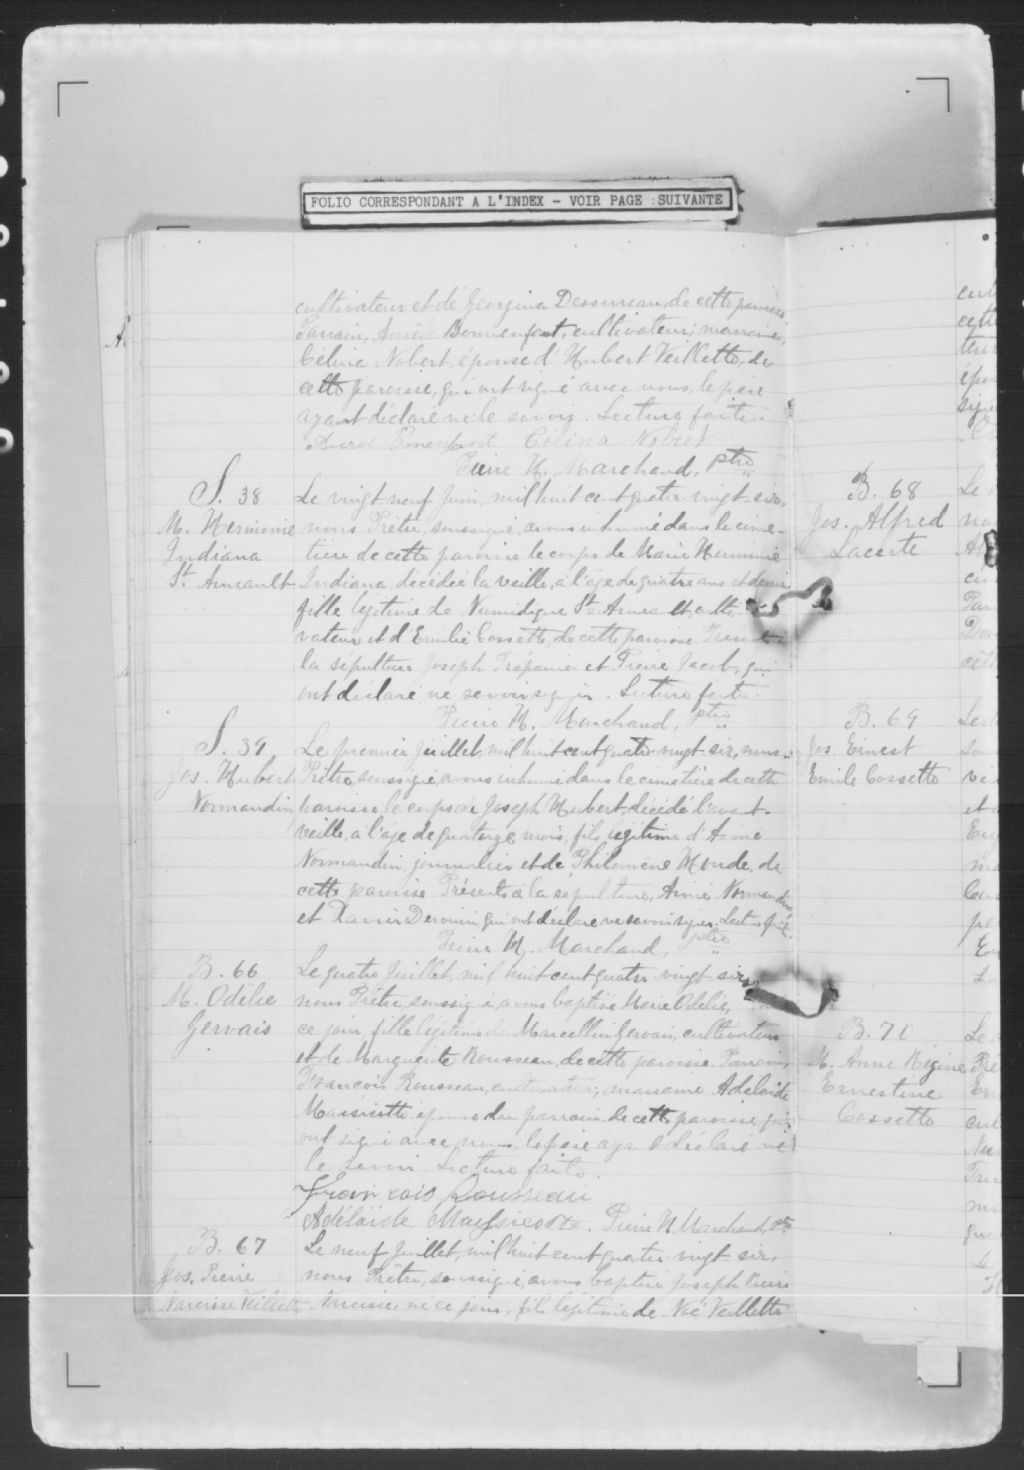 FOLIO CORRESPONDANT A L'INDEX - VOIR PAGE SUIVANTE
cultivateur et de Georgina Dessureau, de cette paroisse
Parrain, Bonnenfant, cultivateur; marraine,
Célina Nobert, épouse d'Hubert Veillette, de
cette paroisse, qui ont signé avec nous, le père
ayant déclaré ne le savoir. Lecture faite.
Célina Nobert
Pierre H. Marchand, ptre
S. 38
M. Herminie
Indiana
St. Arneault
Le vingt neuf Juin, mil huit cent quatre-vingt-six,
nous Prêtre, soussigné, avons inhumé dans le cime-
tière de cette paroisse le corps de Marie Herminie
Indiana, décédée la veille, à l'âge de quatre ans et demi
fille légitime de Numidique St-Arneault, culti-
vateur et d'Emilie Cossette, de cette paroisse. Présents à
la sépulture Joseph Trépanier et Pierre Jacob, qui
ont déclaré ne savoir signer. Lecture faite.
Pierre H. Marchand, ptre
S. 39
Jos. Hubert
Normandin
Le premier Juillet, mil huit cent quatre-vingt-six, nous
Prêtre, soussigné, avons inhumé dans le cimetière de cette
paroisse le corps de Joseph Hubert, décédé l'avant-
veille, à l'âge de quatorze mois, fils légitime d'Aimé
Normandin, journalier et de Philomène Houde, de
cette paroisse. Présents à la sépulture, Aimé Normandin
et Xavier Derouin qui ont déclaré ne savoir signer. Lecture faite.
Pierre H. Marchand, ptre
B. 66
M. Odélie
Gervais
Le quatre Juillet, mil huit cent quatre-vingt-six,
nous Prêtre, soussigné, avons baptisé Marie Odélie,
ce jour, fille légitime de Marcellin Gervais, cultivateur
et de Marguerite Rousseau, de cette paroisse. Parrain,
François Rousseau, cultivateur; marraine Adélaïde
Massicotte, épouse du parrain, de cette paroisse, qui
ont signé avec nous, le père ayant déclaré ne
le savoir. Lecture faite.
François Rousseau
Adélaïde Massicotte. Pierre H. Marchand, ptre
B. 67
Jos. Pierre
Narcisse Veillette
Le neuf Juillet, mil huit cent quatre-vingt-six,
nous Prêtre, soussigné, avons baptisé Joseph Pierre
Narcisse, né ce jour, fils légitime de Noé Veillette
B. 68
Jos. Alfred
Lacerte
B. 69
Jos. Ernest
Emile Cossette
B. 70
M. Anne Régine
Ernestine
Cossette